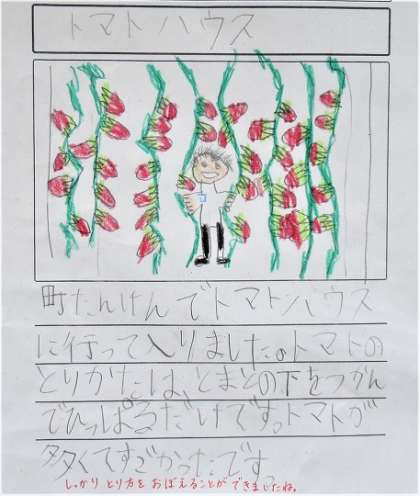 トマトハウス
町たんけんでトマトハウス
に行って入りました。トマトの
とりかたは、とまとの下をつかん
でひっぱるだけですっトマトが
多くてすごかったです。
しっかり とり方を おぼえることが できましたね。